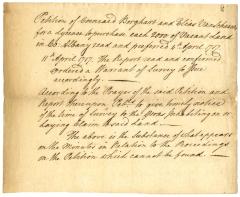 Petition of Coenraed Borghart and Elias Van Schaick
for a Lycense to purchase each 2000 of Vacant Land
in Co. Albany read and preferred 4th April 1717.
11th April 1717. The Report read and confirmed
& ordered a Warrant of Survey to Issue
accordingly.
According to the Prayer of the said Petition and
Report thereupon Petrs. to give timely notice
of the time of Survey to the persons Inhabiting or
laying Claim to said Land
The above is the Substance of what appears
on the Minutes in Relation to the Proceedings
on the Petition which cannot be found